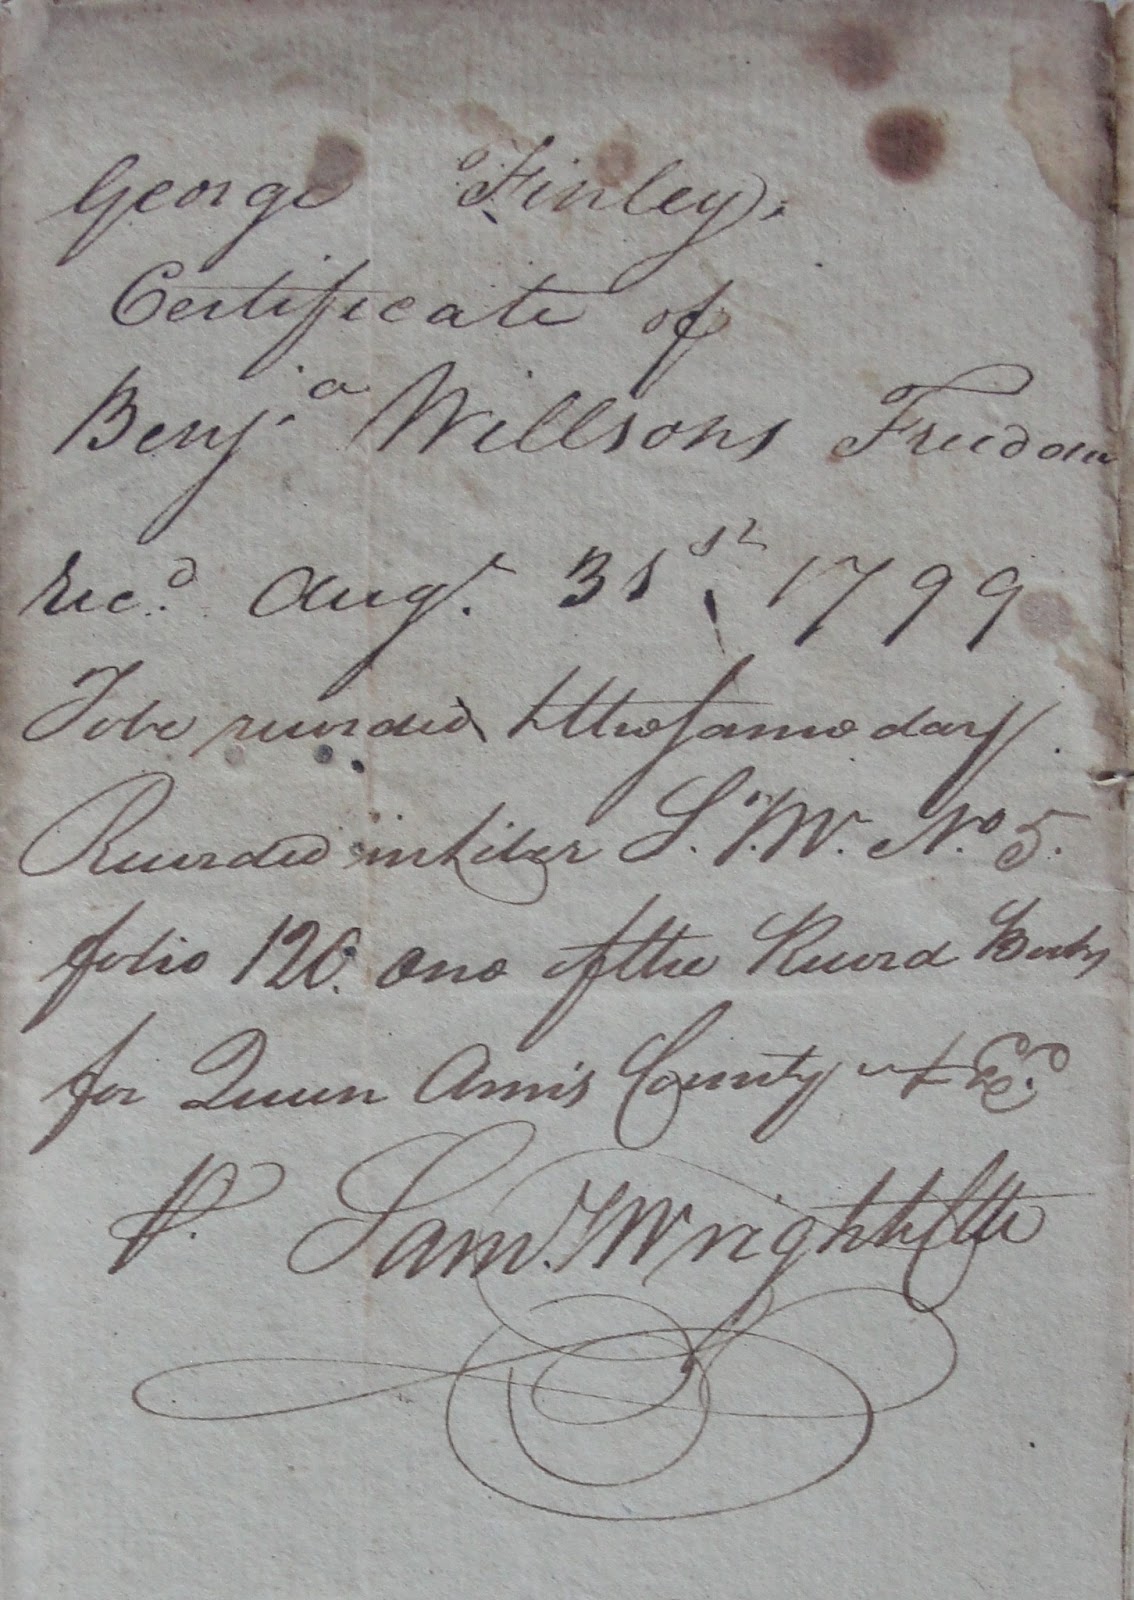 George Finley.
Certificate of
Benj.a Willsons Freedom
Rec.d Augt. 31st. 1799
To be recorded & the same day
Recorded in Liber S. T. W. No. 5.
folio 120. one of the Record Books
for Queen Anns County &c.
P. Saml. T Wright Clk